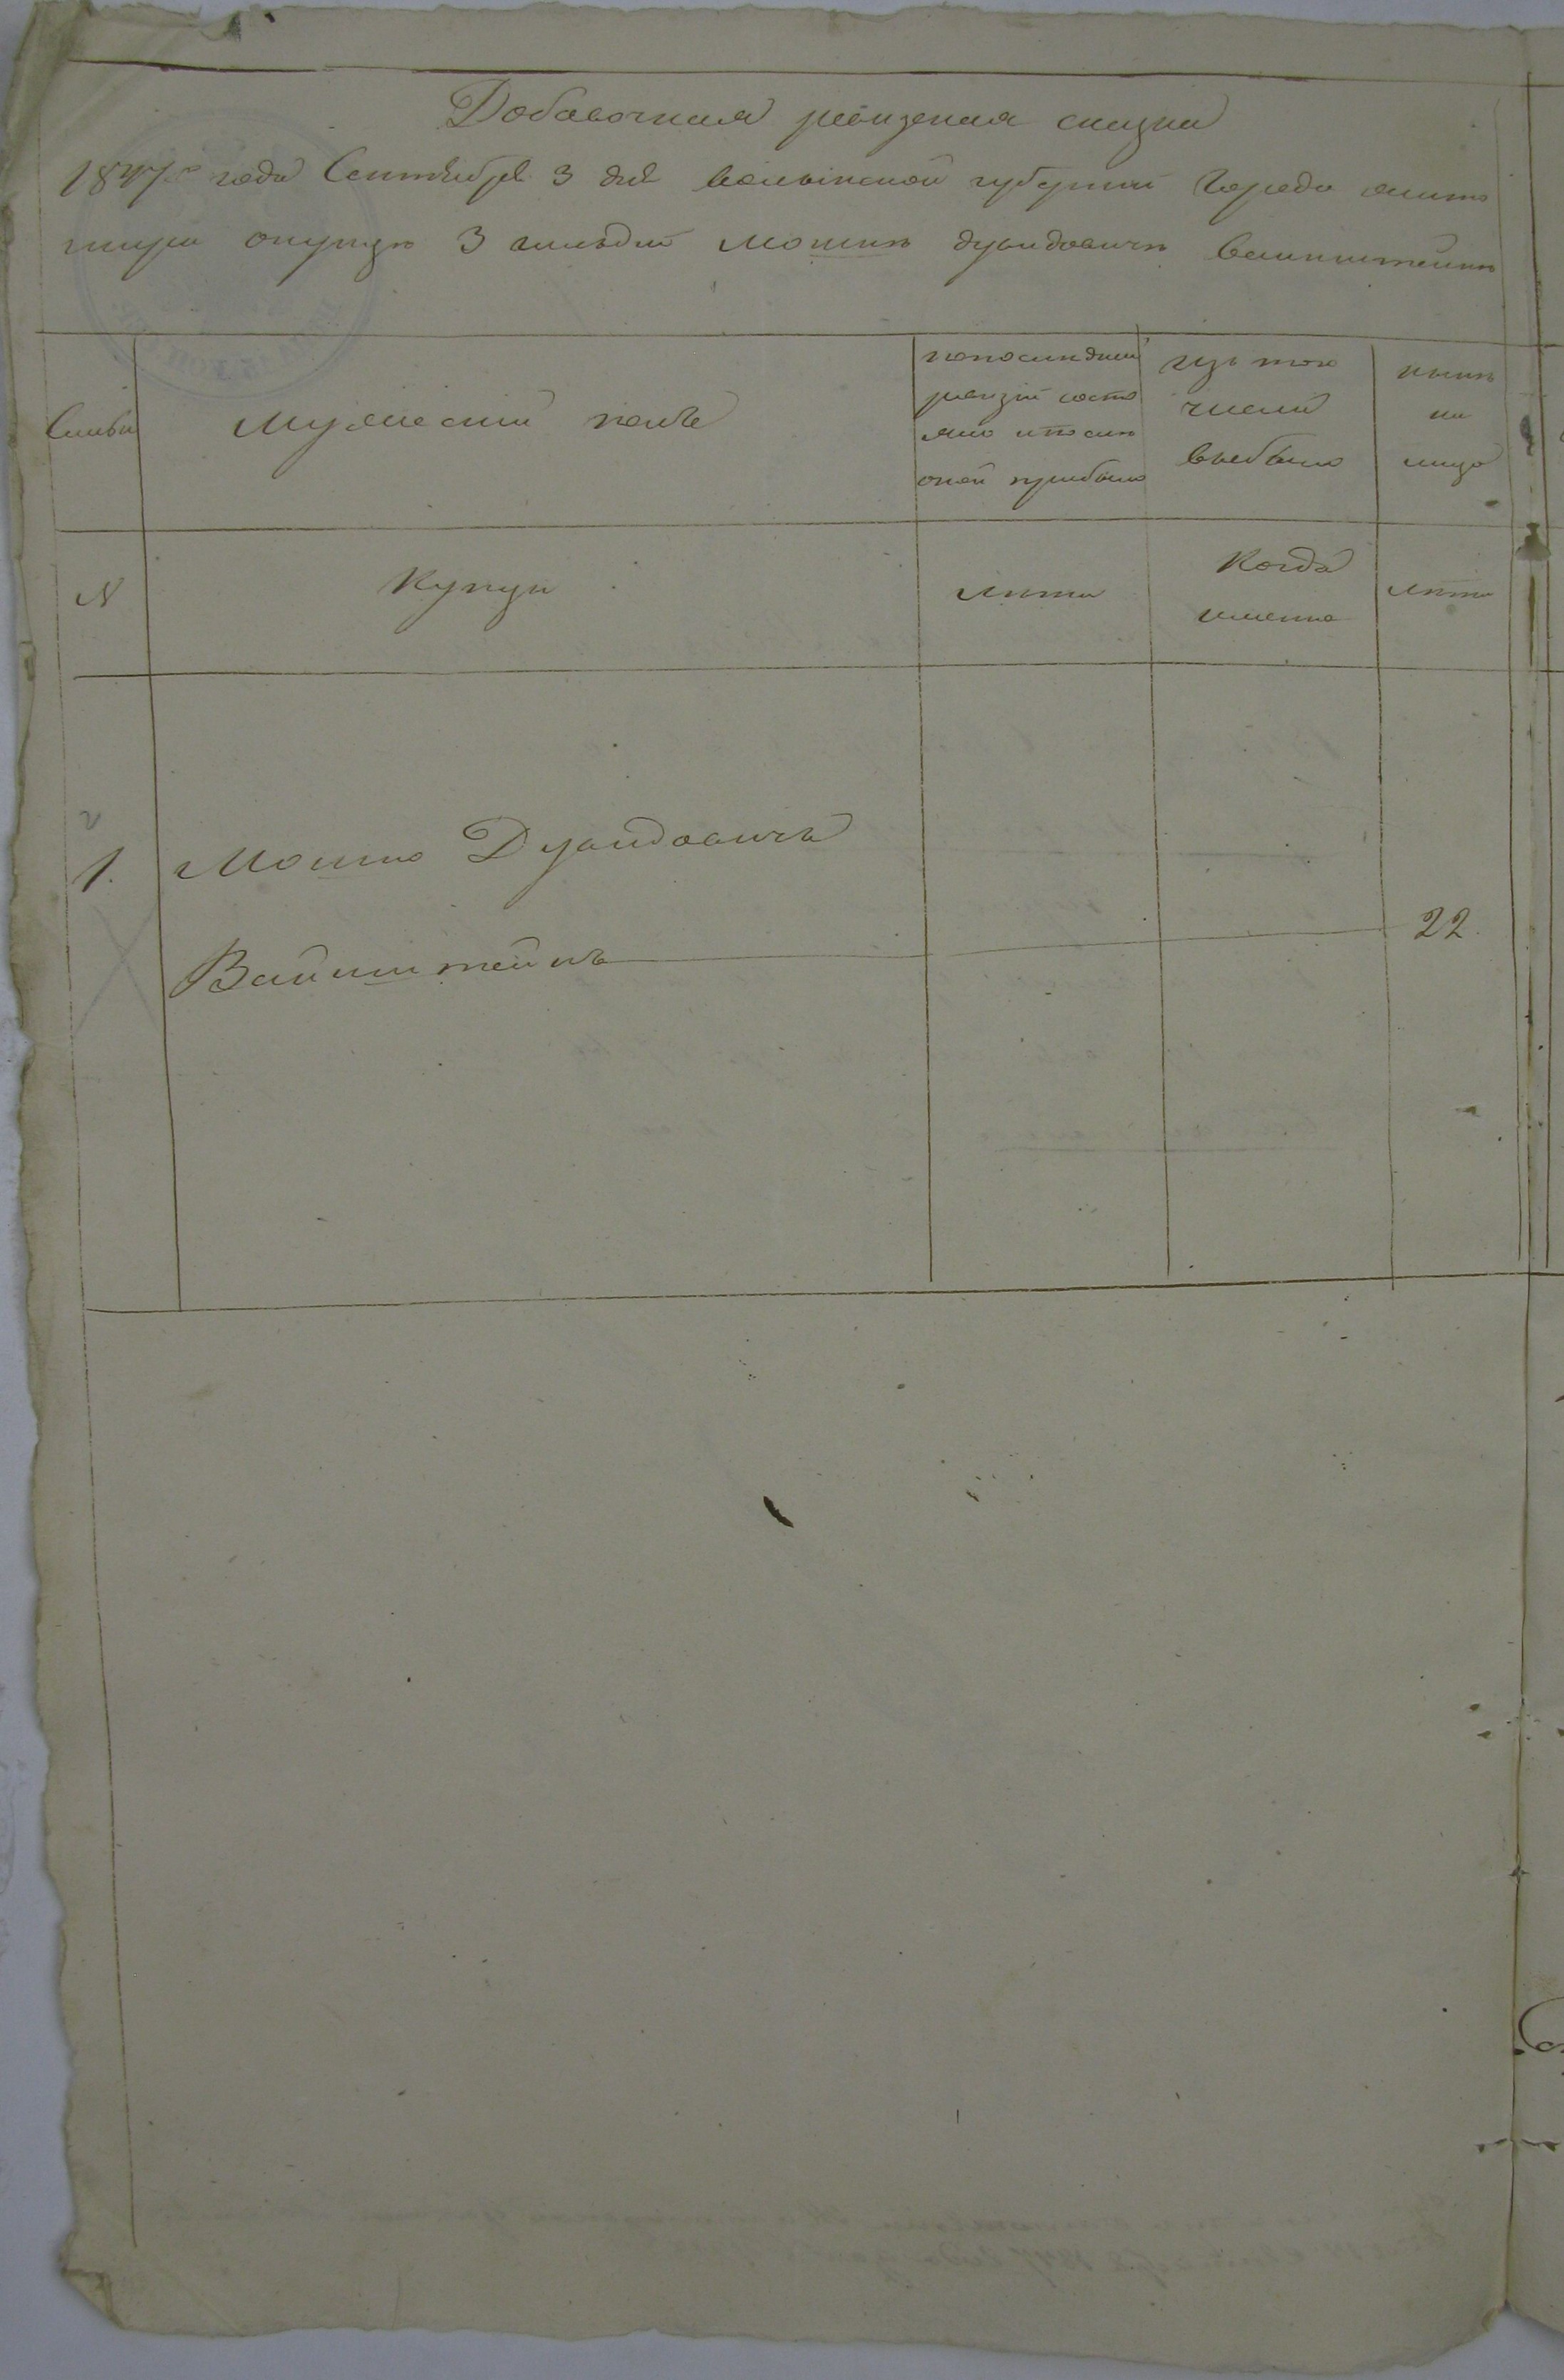 Добавочная ревизская сказка
1847го года Сентября 3 дня волынской губернии Города жито
мира окупцъ 3 гильдии мошкъ дувидовичъ Ваинштеинъ
Семьи
Мужеский полъ
попоследней
ревизии состо
яло ипосли
оной прибыло
изъ того
числа
выбыло
нынъ
на
лицо
N
Купцы
лета
Когда
именно
лета
1. Мошко Дувидовичъ
Вайнштейнъ
22